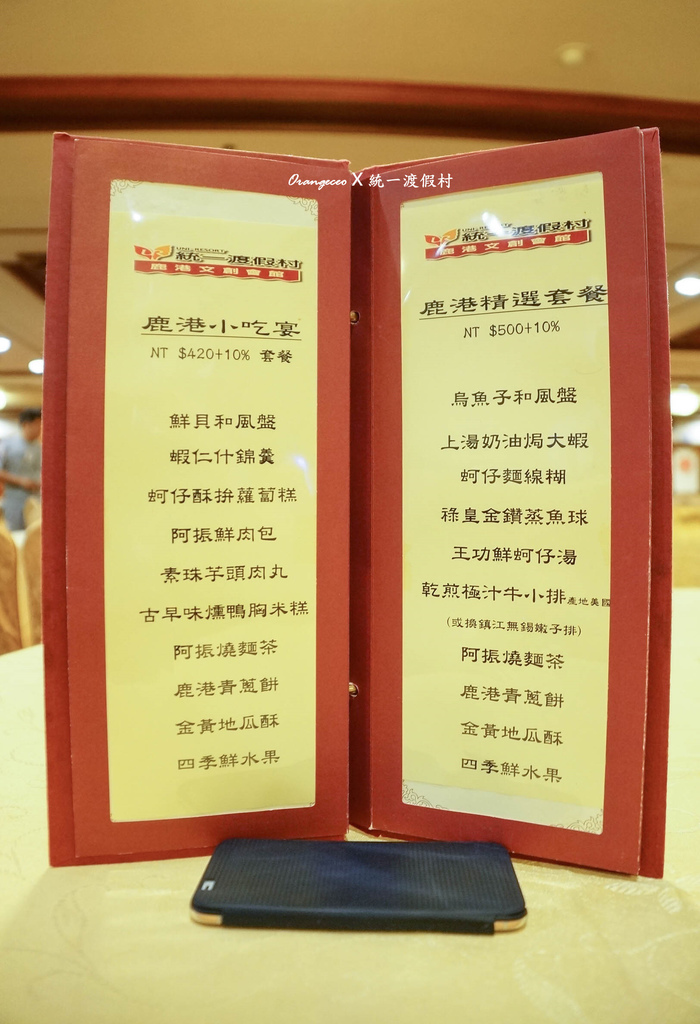 Orangeceo X 統一渡假村
UNI-RESORT
統一渡假村
鹿港文創會館
鹿港小吃宴
NT $420+10% 套餐
鮮貝和風盤
蝦仁什錦羹
蚵仔酥拚蘿蔔糕
阿振鮮肉包
素珠芋頭肉丸
古早味燻鴨胸米糕
阿振燒麵茶
鹿港青蔥餅
金黃地瓜酥
四季鮮水果
統一渡假村
鹿港文創會館
鹿港精選套餐
NT $500+10%
烏魚子和風盤
上湯奶油焗大蝦
蚵仔麵線糊
祿皇金鑽蒸魚球
王功鮮蚵仔湯
乾煎極汁牛小排產地美國
(或換鎮江無錫嫩子排)
阿振燒麵茶
鹿港青蔥餅
金黃地瓜酥
四季鮮水果